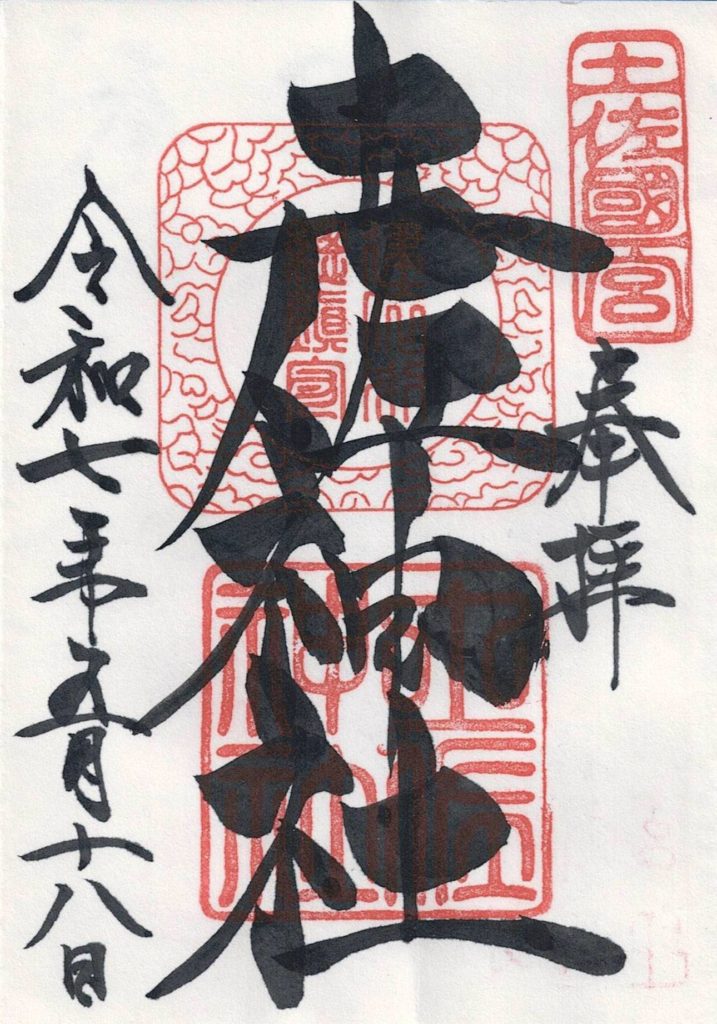 土佐國一宮
奉拝
土佐神社
土佐
神社
令和七年五月十八日